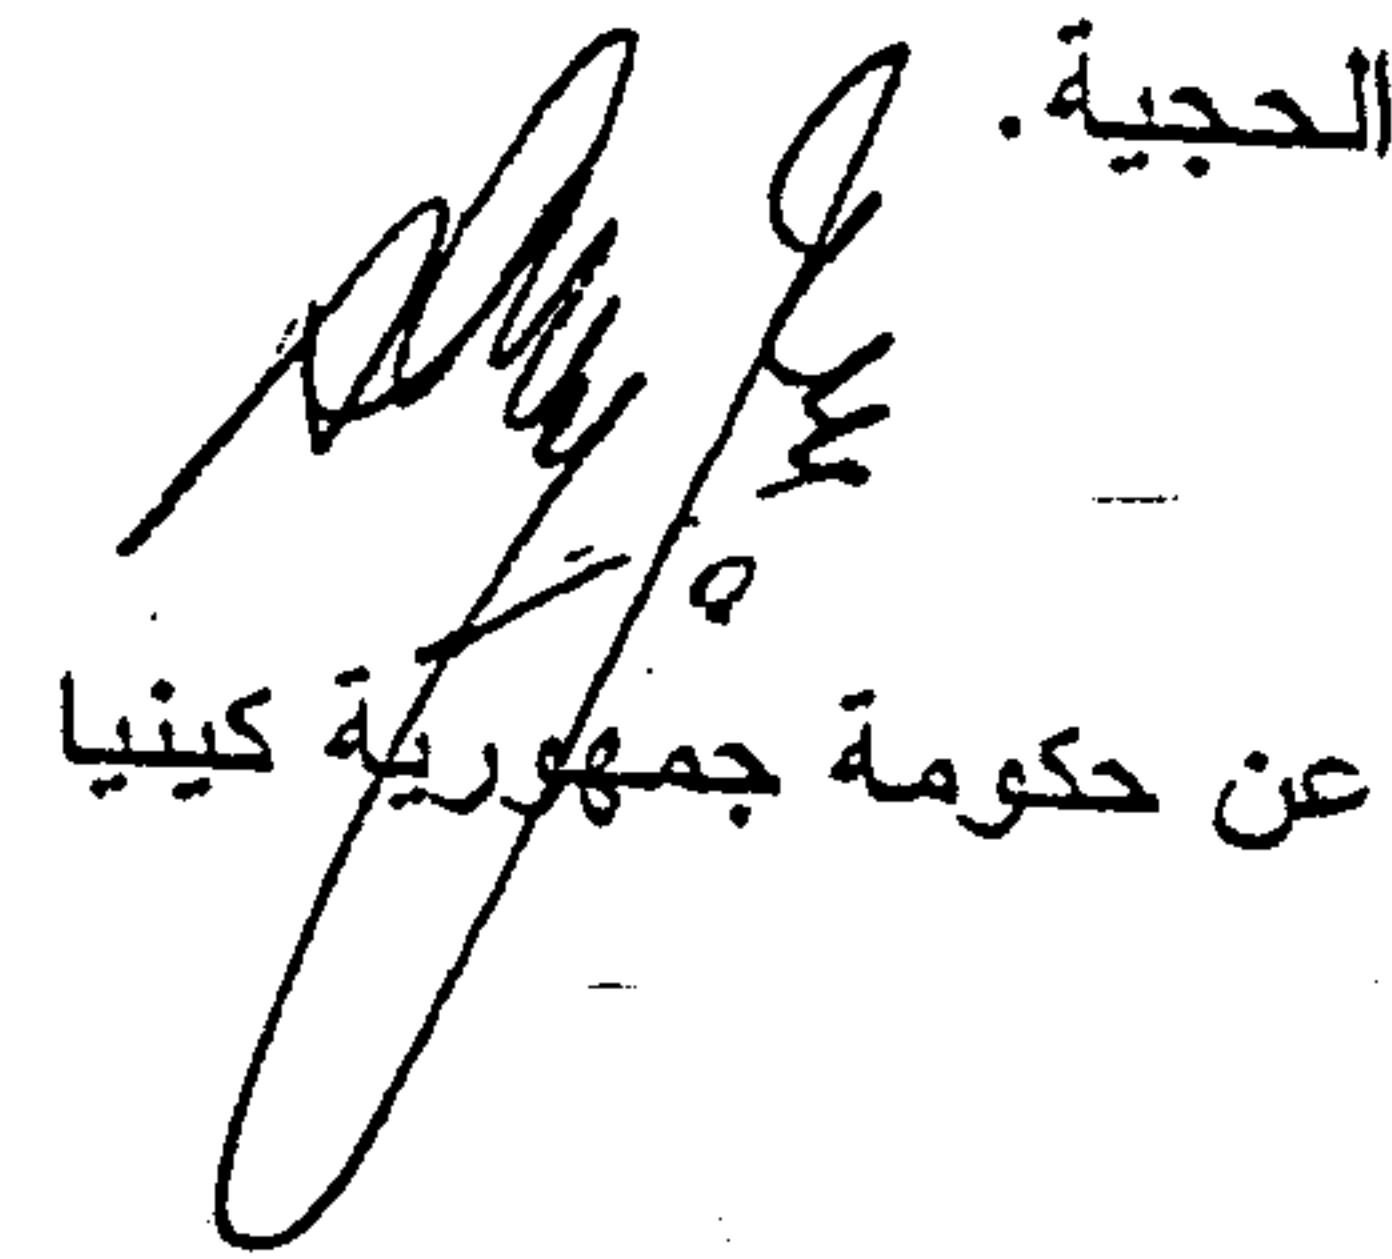 الحجية.
عن حكومة جمهورية كينيا